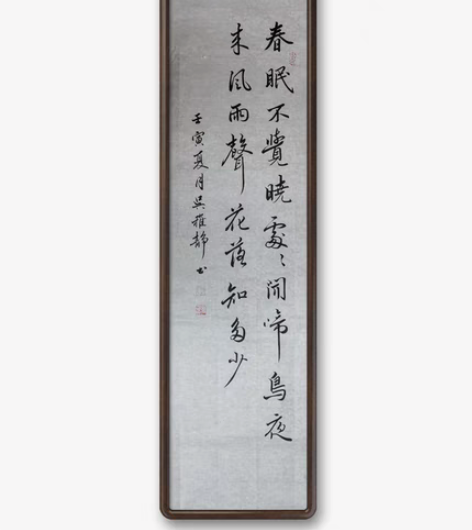 春眠不覺曉處〻聞啼鳥夜
来風雨聲花落知多少
壬寅夏月吳雅靜書